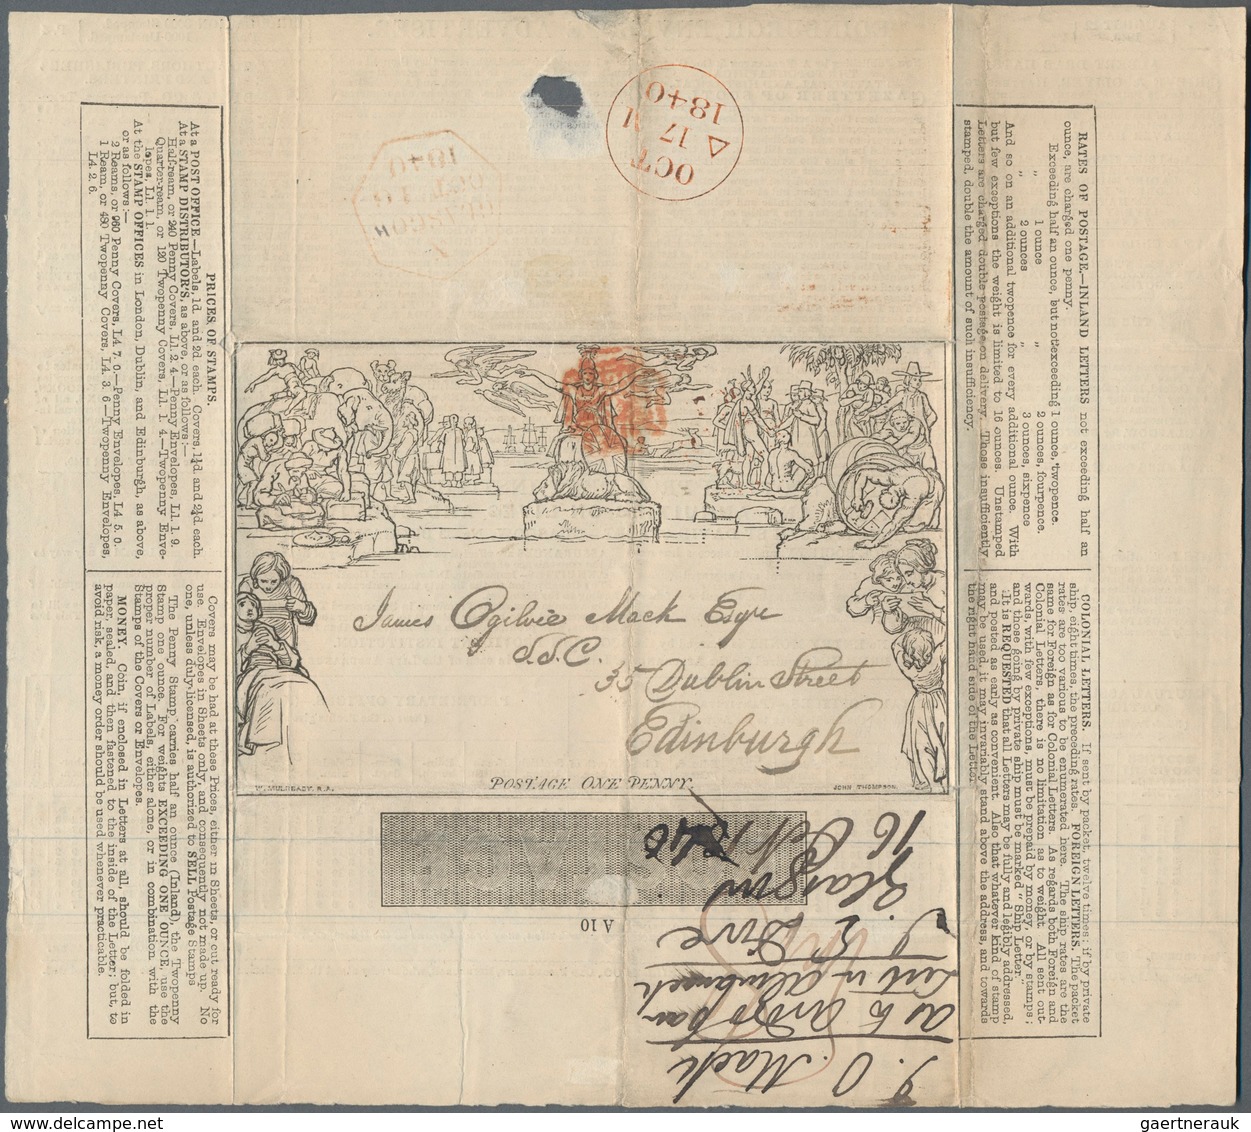 OCT
17 M
1840
GLASGOW
1840
PRICES OF STAMPS.
At a POST OFFICE.—Labels, 1d. and 2d. each. Covers, 1¼d. and 2¼d. each.
At a STAMP DISTRIBUTOR'S, as above, or as follows:—
Half-ream, or 240 Penny Covers, L1. 2. 4.—Penny Envelopes, L1. 1. 9.
Quarter-ream, or 120 Twopenny Covers, L1. 1. 4—Twopenny Enve-
lopes, L1. 1. 1.
At the STAMP OFFICES in London, Dublin, and Edinburgh, as above,
or as follows.—
2 Reams, or 960 Penny Covers, L4. 7. 0.—Penny Envelopes, L4. 5. 0.
1 Ream, or 480 Twopenny Covers, L4. 3. 6—Twopenny Envelopes,
L4. 2. 6.
Covers may be had at these Prices, either in Sheets, or cut ready for
use. Envelopes in Sheets only, and consequently not made up. No
one, unless duly licensed, is authorized to SELL Postage Stamps
The Penny Stamp carries half an ounce (Inland), the Twopenny
Stamp one ounce. For weights EXCEEDING ONE OUNCE, use the
proper number of Labels, either alone, or in combination with the
Stamps of the Covers or Envelopes.
MONEY. Coin, if enclosed in Letters at all, should be folded in
paper, sealed, and then fastened to the inside of the Letter; but, to
avoid risk, a money order should be used whenever practicable.
RATES OF POSTAGE.—INLAND LETTERS not exceeding half an
ounce, are charged one penny.
Exceeding half an ounce, but not exceeding 1 ounce, twopence.
" 1 ounce " 2 ounces, fourpence.
" 2 ounces " 3 ounces, sixpence
And so on an additional twopence for every additional ounce. With
but few exceptions the weight is limited to 16 ounces. Unstamped
Letters are charged double postage on delivery. Those insufficiently
stamped, double the amount of such insufficiency.
COLONIAL LETTERS. If sent by packet, twelve times; if by private
ship, eight times, the preceding rates. FOREIGN LETTERS. The packet
rates are too various to be enumerated here. The ship rates are the
same for Foreign as for Colonial Letters. As regards both Foreign and
Colonial Letters, there is no limitation as to weight. All sent out-
wards, with few exceptions, must be prepaid by money, or by stamps;
and those going by private ship must be marked "Ship Letter."
It is REQUESTED that all Letters may be fully and legibly addressed,
and posted as early as convenient. Also that whatever kind of stamp
may be used, it may invariably stand above the address, and towards
the right hand side of the Letter.
James Ogilvie Mack Esqre
S.S.C.
35 Dublin Street
Edinburgh
W. MULREADY. R.A.
POSTAGE ONE PENNY.
JOHN THOMPSON.
A 10
J. O. Mack
Glasgow
16 Oct
gaertnerauk @ www.delcampe.net